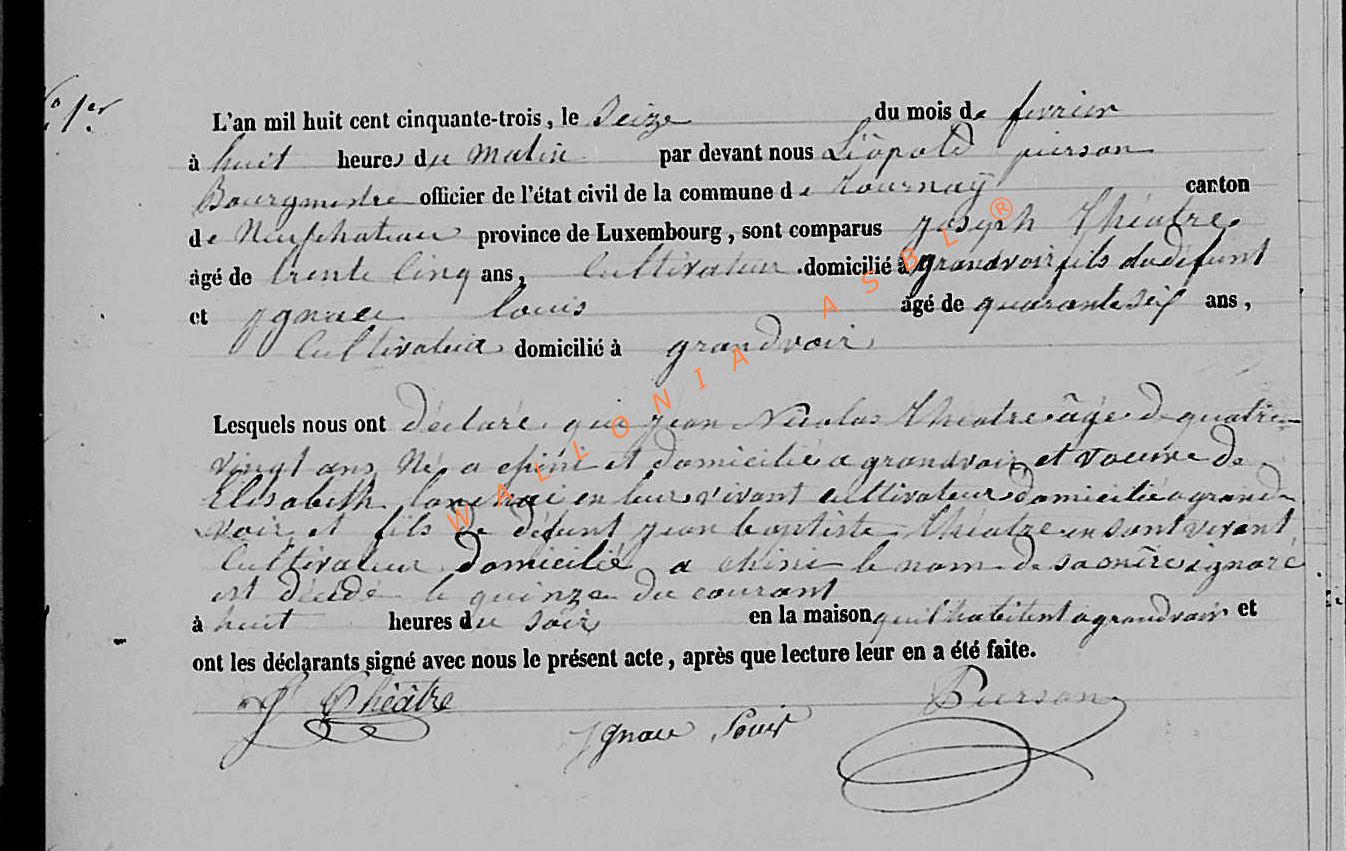 No 1er.
L'an mil huit cent cinquante-trois, le Seize du mois de fevrier
à huit heures du Matin par devant nous Léopold pierson
Bourgmestre officier de l'état civil de la commune de tournaÿ canton
de Neufchateau province de Luxembourg, sont comparus joseph théatre
âgé de trente Cinq ans, Cultivateur domicilié à grandvoir fils du défunt
et ygnace Louis âgé de quarante six ans,
Cultivateur domicilié à grandvoir
Lesquels nous ont déclaré que jean Nicolas théatre âgé de quatre
vingt ans Né a chini et domicilié a grandvoir et voeuve de
Elisabeth en leur vivant cultivateur domicilié a grand
voir et fils de défunt jean baptiste théatre en sont vivant
Cultivateur domicilié a chini le nom de sa mère ignoré
est décédé le quinze du courant
à huit heures du soir en la maison qu'il habitent a grandvoir et
ont les déclarants signé avec nous le présent acte, après que lecture leur en a été faite.
J Théâtre
Ygnace Louis
Pierson
WALLONIA ASBL ®